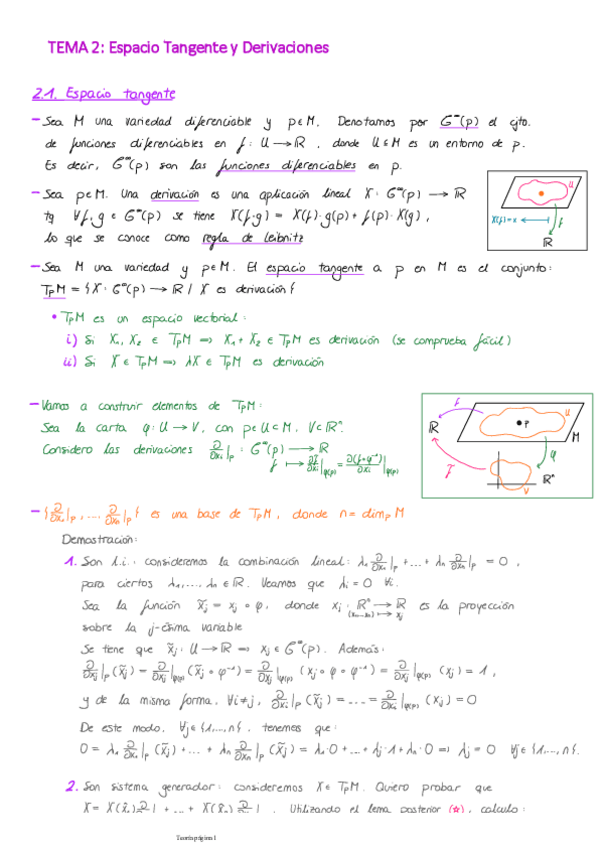 TEMA 2: Espacio Tangente y Derivaciones
2.1. Espacio tangente
– Sea M una variedad diferenciable y p∈M. Denotamos por C^∞(p) el cjto.
de funciones diferenciables en f: U → ℝ, donde U⊆M es un entorno de p.
Es decir, C^∞(p) son las funciones diferenciables en p.
– Sea p∈M. Una derivación es una aplicación lineal X: C^∞(p) → ℝ
tq ∀f, g ∈ C^∞(p) se tiene X(f·g) = X(f)·g(p) + f(p)·X(g),
lo que se conoce como regla de leibnitz
U
X(f)=x
f
ℝ
– Sea M una variedad y p∈M. El espacio tangente a p en M es el conjunto:
TpM = {X: C^∞(p) → ℝ / X es derivación}
• TpM es un espacio vectorial:
i) Si X₁, X₂ ∈ TpM ⇒ X₁ + X₂ ∈ TpM es derivación (se comprueba fácil)
ii) Si X ∈ TpM ⇒ λX ∈ TpM es derivación
– Vamos a construir elementos de TpM:
Sea la carta φ: U → V, con p∈U⊂M, V⊂ℝⁿ.
Considero las derivaciones ∂/∂xᵢ|p : C^∞(p) → ℝ
f ↦ ∂f̃/∂xᵢ|φ(p) = ∂(f∘φ⁻¹)/∂xᵢ|φ(p)
f
U
ℝ
p
M
φ
f̃
ℝⁿ
V
– {∂/∂x₁|p, ... ∂/∂xₙ|p} es una base de TpM, donde n = dimp M
Demostración:
1. Son l.i.: consideremos la combinación lineal: λ₁ ∂/∂x₁|p + ... + λₙ ∂/∂xₙ|p = 0,
para ciertos λ₁, ..., λₙ ∈ ℝ. Veamos que λᵢ = 0 ∀i.
Sea la función x̃ⱼ = xⱼ ∘ φ, donde xⱼ: ℝⁿ → ℝ es la proyección
(x₁...xₙ) ↦ xⱼ
sobre la j-ésima variable
Se tiene que x̃ⱼ: U → ℝ ⇒ xⱼ ∈ C^∞(p). Además:
∂/∂xⱼ|p (x̃ⱼ) = ∂/∂xⱼ|φ(p) (x̃ⱼ ∘ φ⁻¹) = ∂/∂xⱼ|φ(p) (xⱼ ∘ φ ∘ φ⁻¹) = ∂/∂xⱼ|φ(p) (xⱼ) = 1,
y de la misma forma, ∀i≠j, ∂/∂xᵢ|p (x̃ⱼ) = ... = ∂/∂xᵢ|φ(p) (xⱼ) = 0
De este modo, ∀j ∈ {1,...,n}, tenemos que:
0 = λ₁ ∂/∂x₁|p (x̃ⱼ) + ... + λₙ ∂/∂xₙ|p (x̃ⱼ) = λ₁·0 + ... + λⱼ·1 + λₙ·0 ⇒ λⱼ = 0 ∀j ∈ {1,...,n}.
2. Son sistema generador: consideremos X ∈ TpM. Quiero probar que
X = X(x̃₁) ∂ | + ... + X(x̃ₙ) ∂ |. Utilizando el lema posterior (☆), calculo:
Teoría página 1